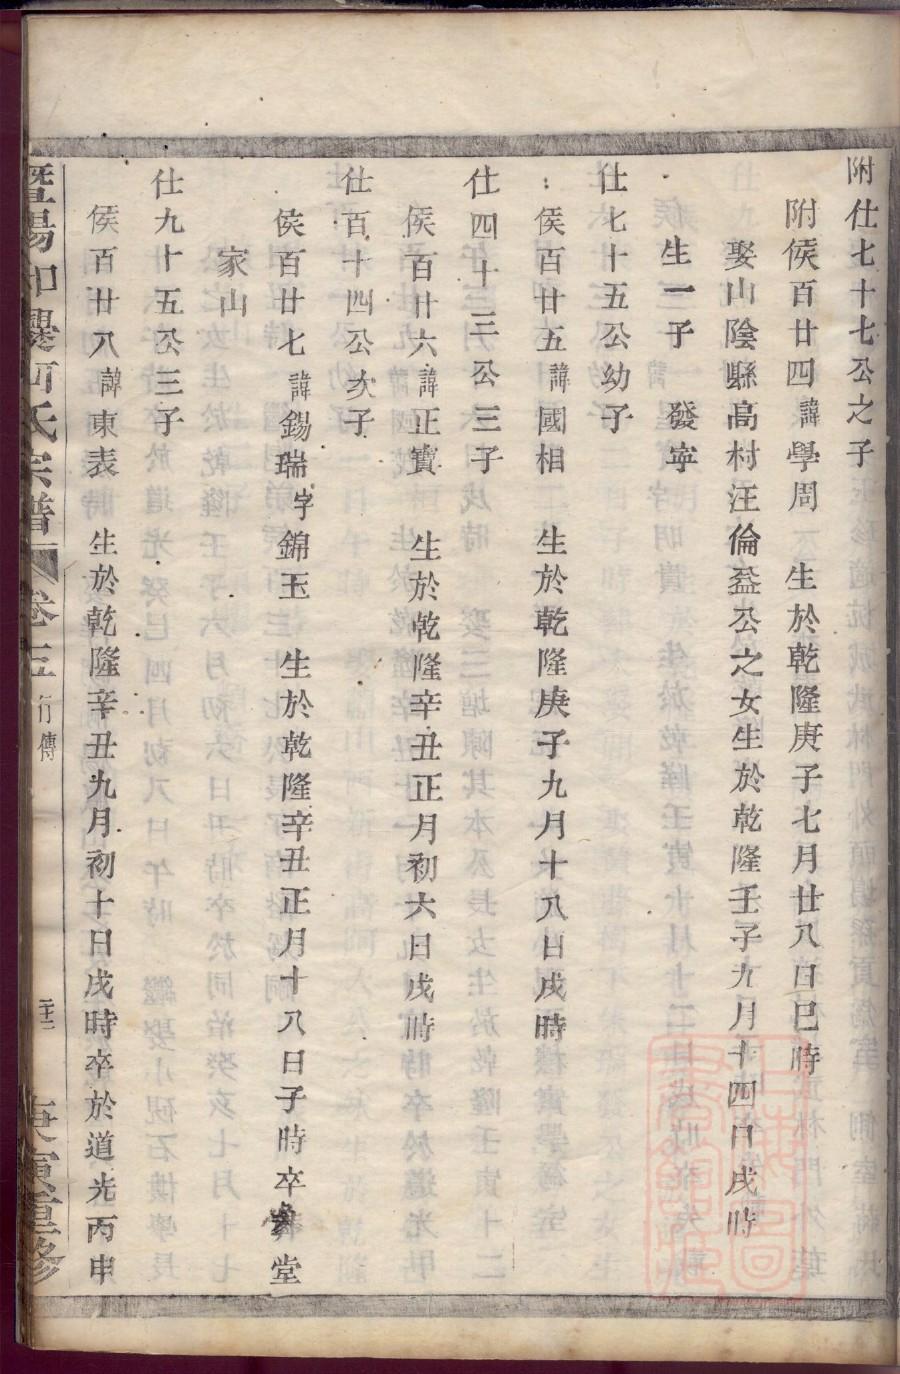 附仕七十七公之子
附侯百廿四諱學周　生於乾隆庚子七月廿八日巳時
娶山陰縣高村汪倫益公之女生於乾隆壬子九月十四日戌時
生一子　發寧
仕七十五公幼子
侯百廿五諱國相　生於乾隆庚子九月十八日戌時
仕四十三公三子
侯百廿六諱正寶　生於乾隆辛丑正月初六日戌時
仕百十四公次子
侯百廿七諱錫瑞字錦玉　生於乾隆辛丑正月十八日子時卒堂
家山
仕九十五公三子
侯百廿八諱東表　生於乾隆辛丑九月初十日戌時卒於道光丙申
暨陽 氏宗譜　卷三行傳　庚寅重修